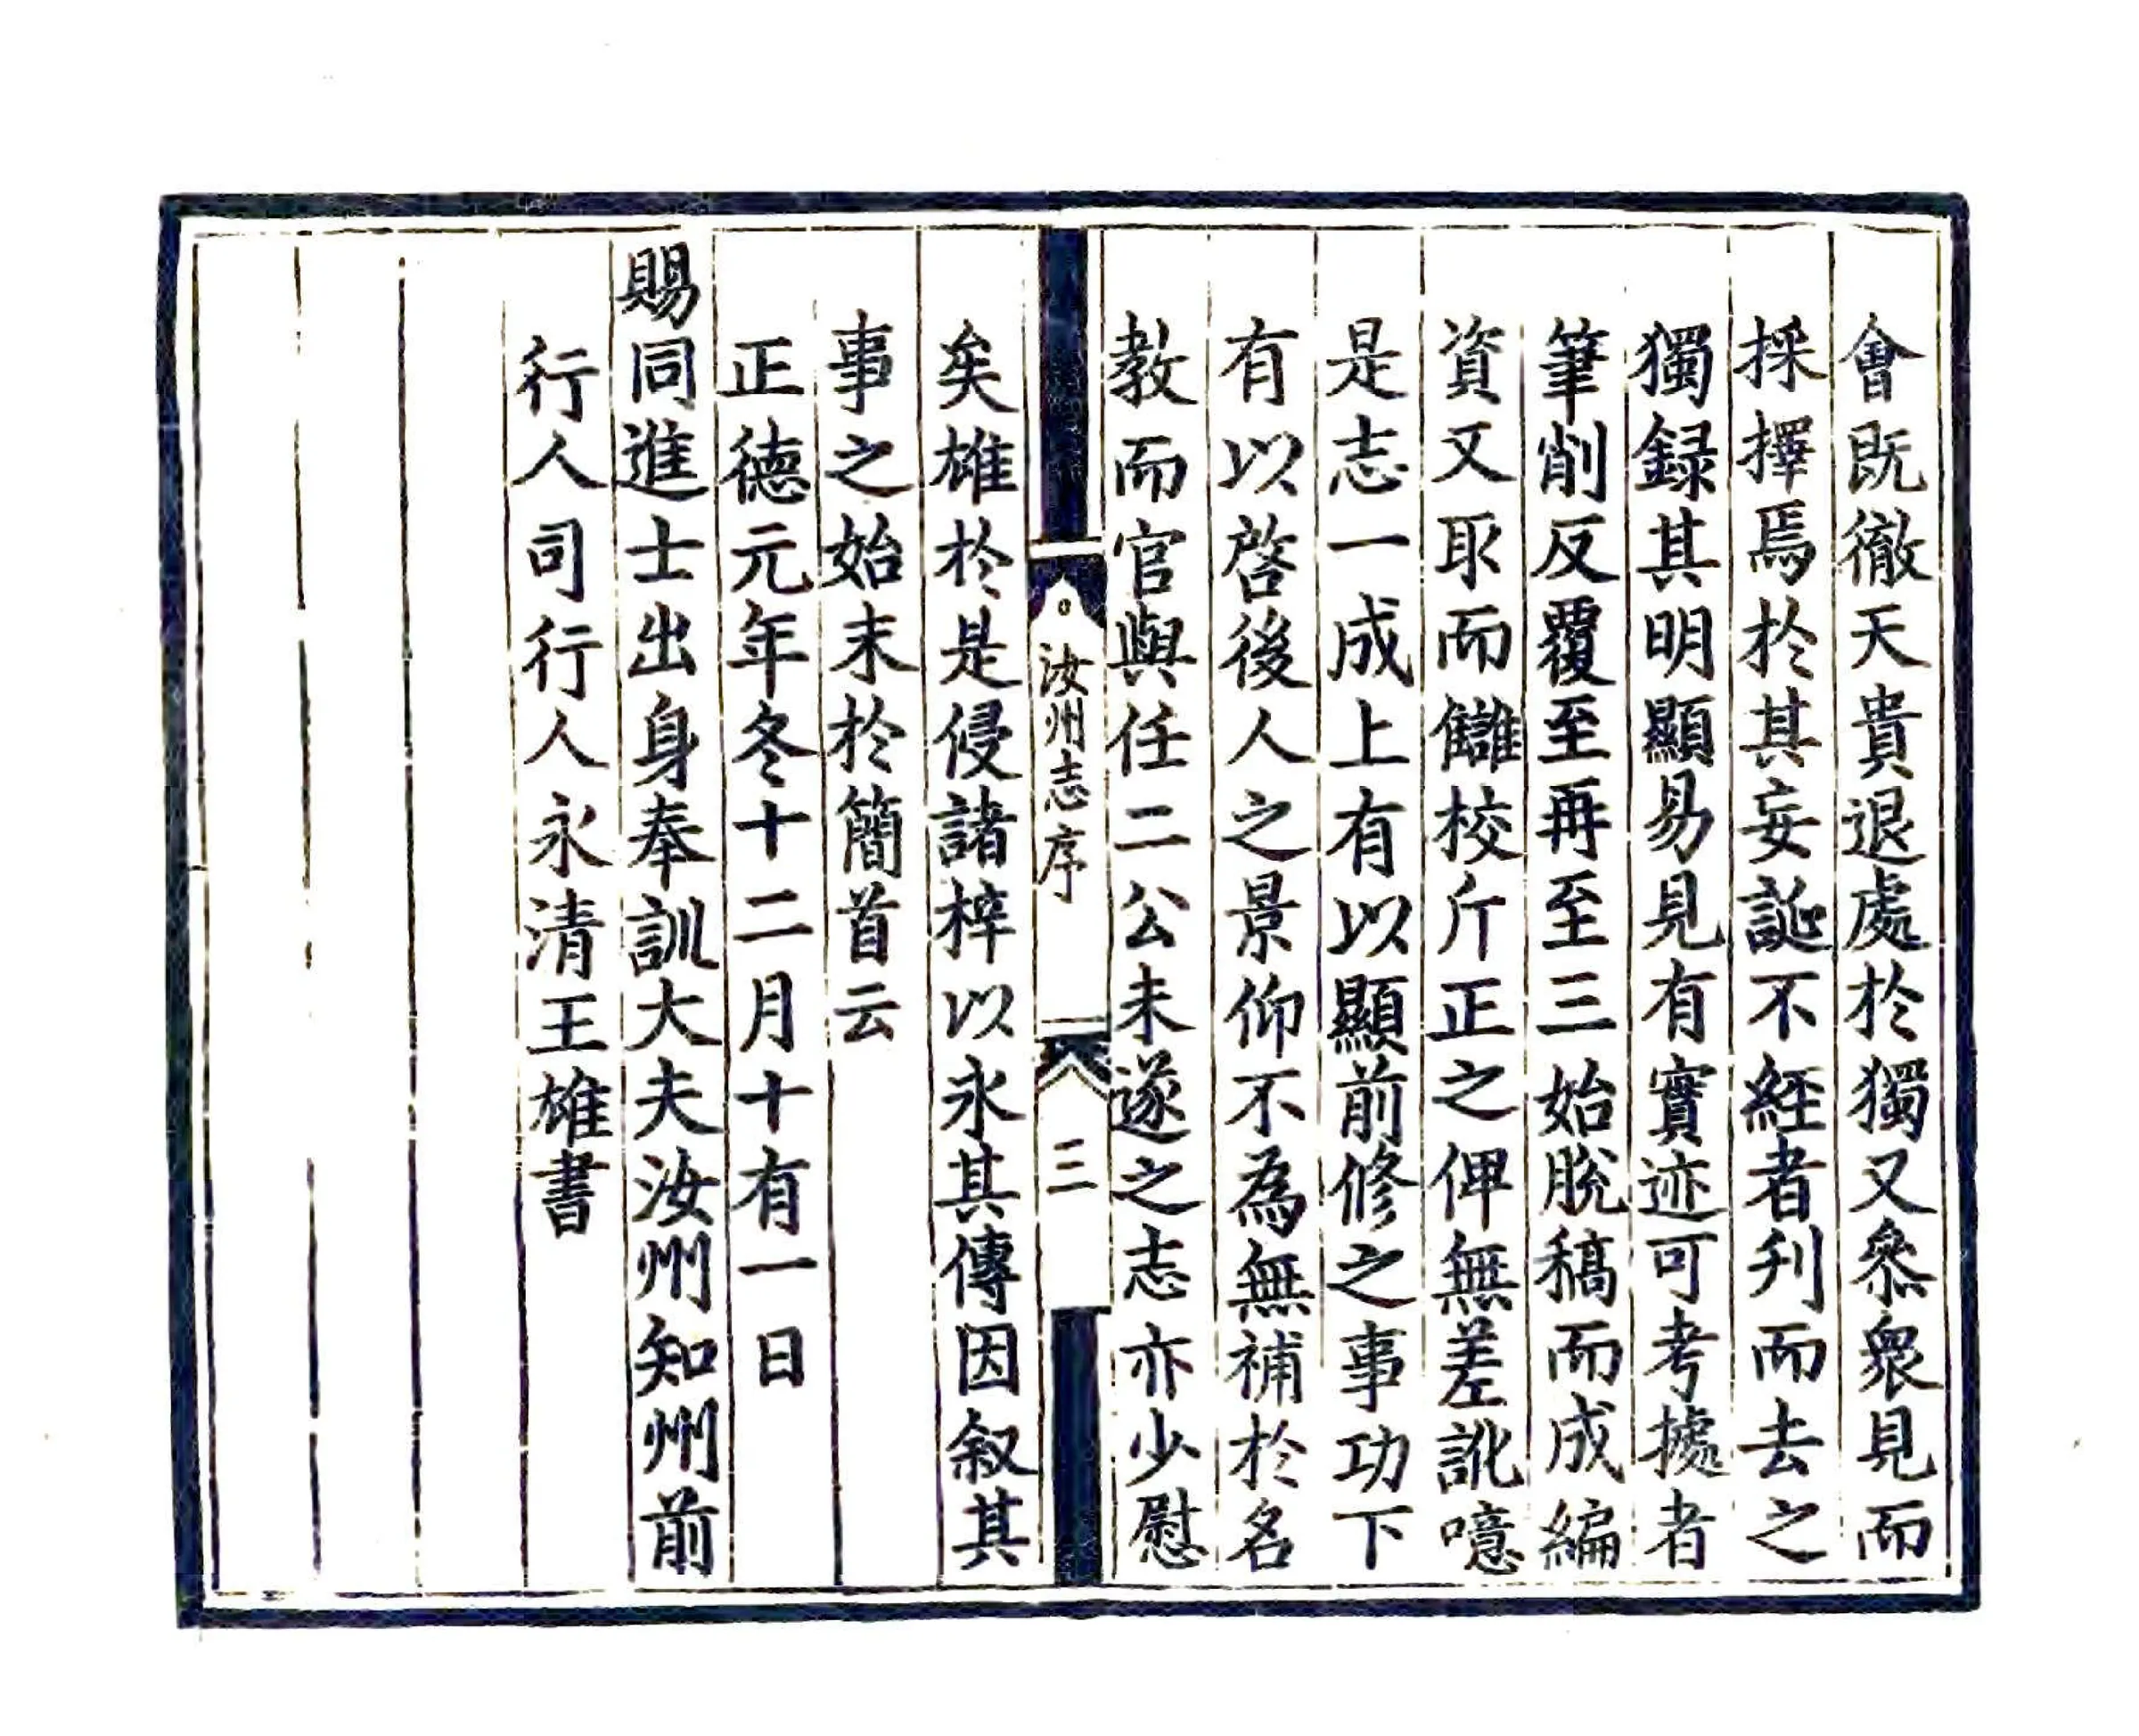 會既徹天貴退處於獨又叅衆見而
採擇焉於其妄誕不經者刋而去之
獨録其明顯易見有實迹可考據者
筆削反覆至再至三始脫稿而成編
資又取而讎校斤正之俾無差訛噫
是志一成上有以顯前修之事功下
有以啓後人之景仰不為無補於名
教而官與任二公未遂之志亦少慰
汝州志序
三
矣雄於是侵諸梓以永其傳因叙其
事之始末於簡首云
正德元年冬十二月十有一日
賜同進士出身奉訓大夫汝州知州前
行人司行人永清王雄書